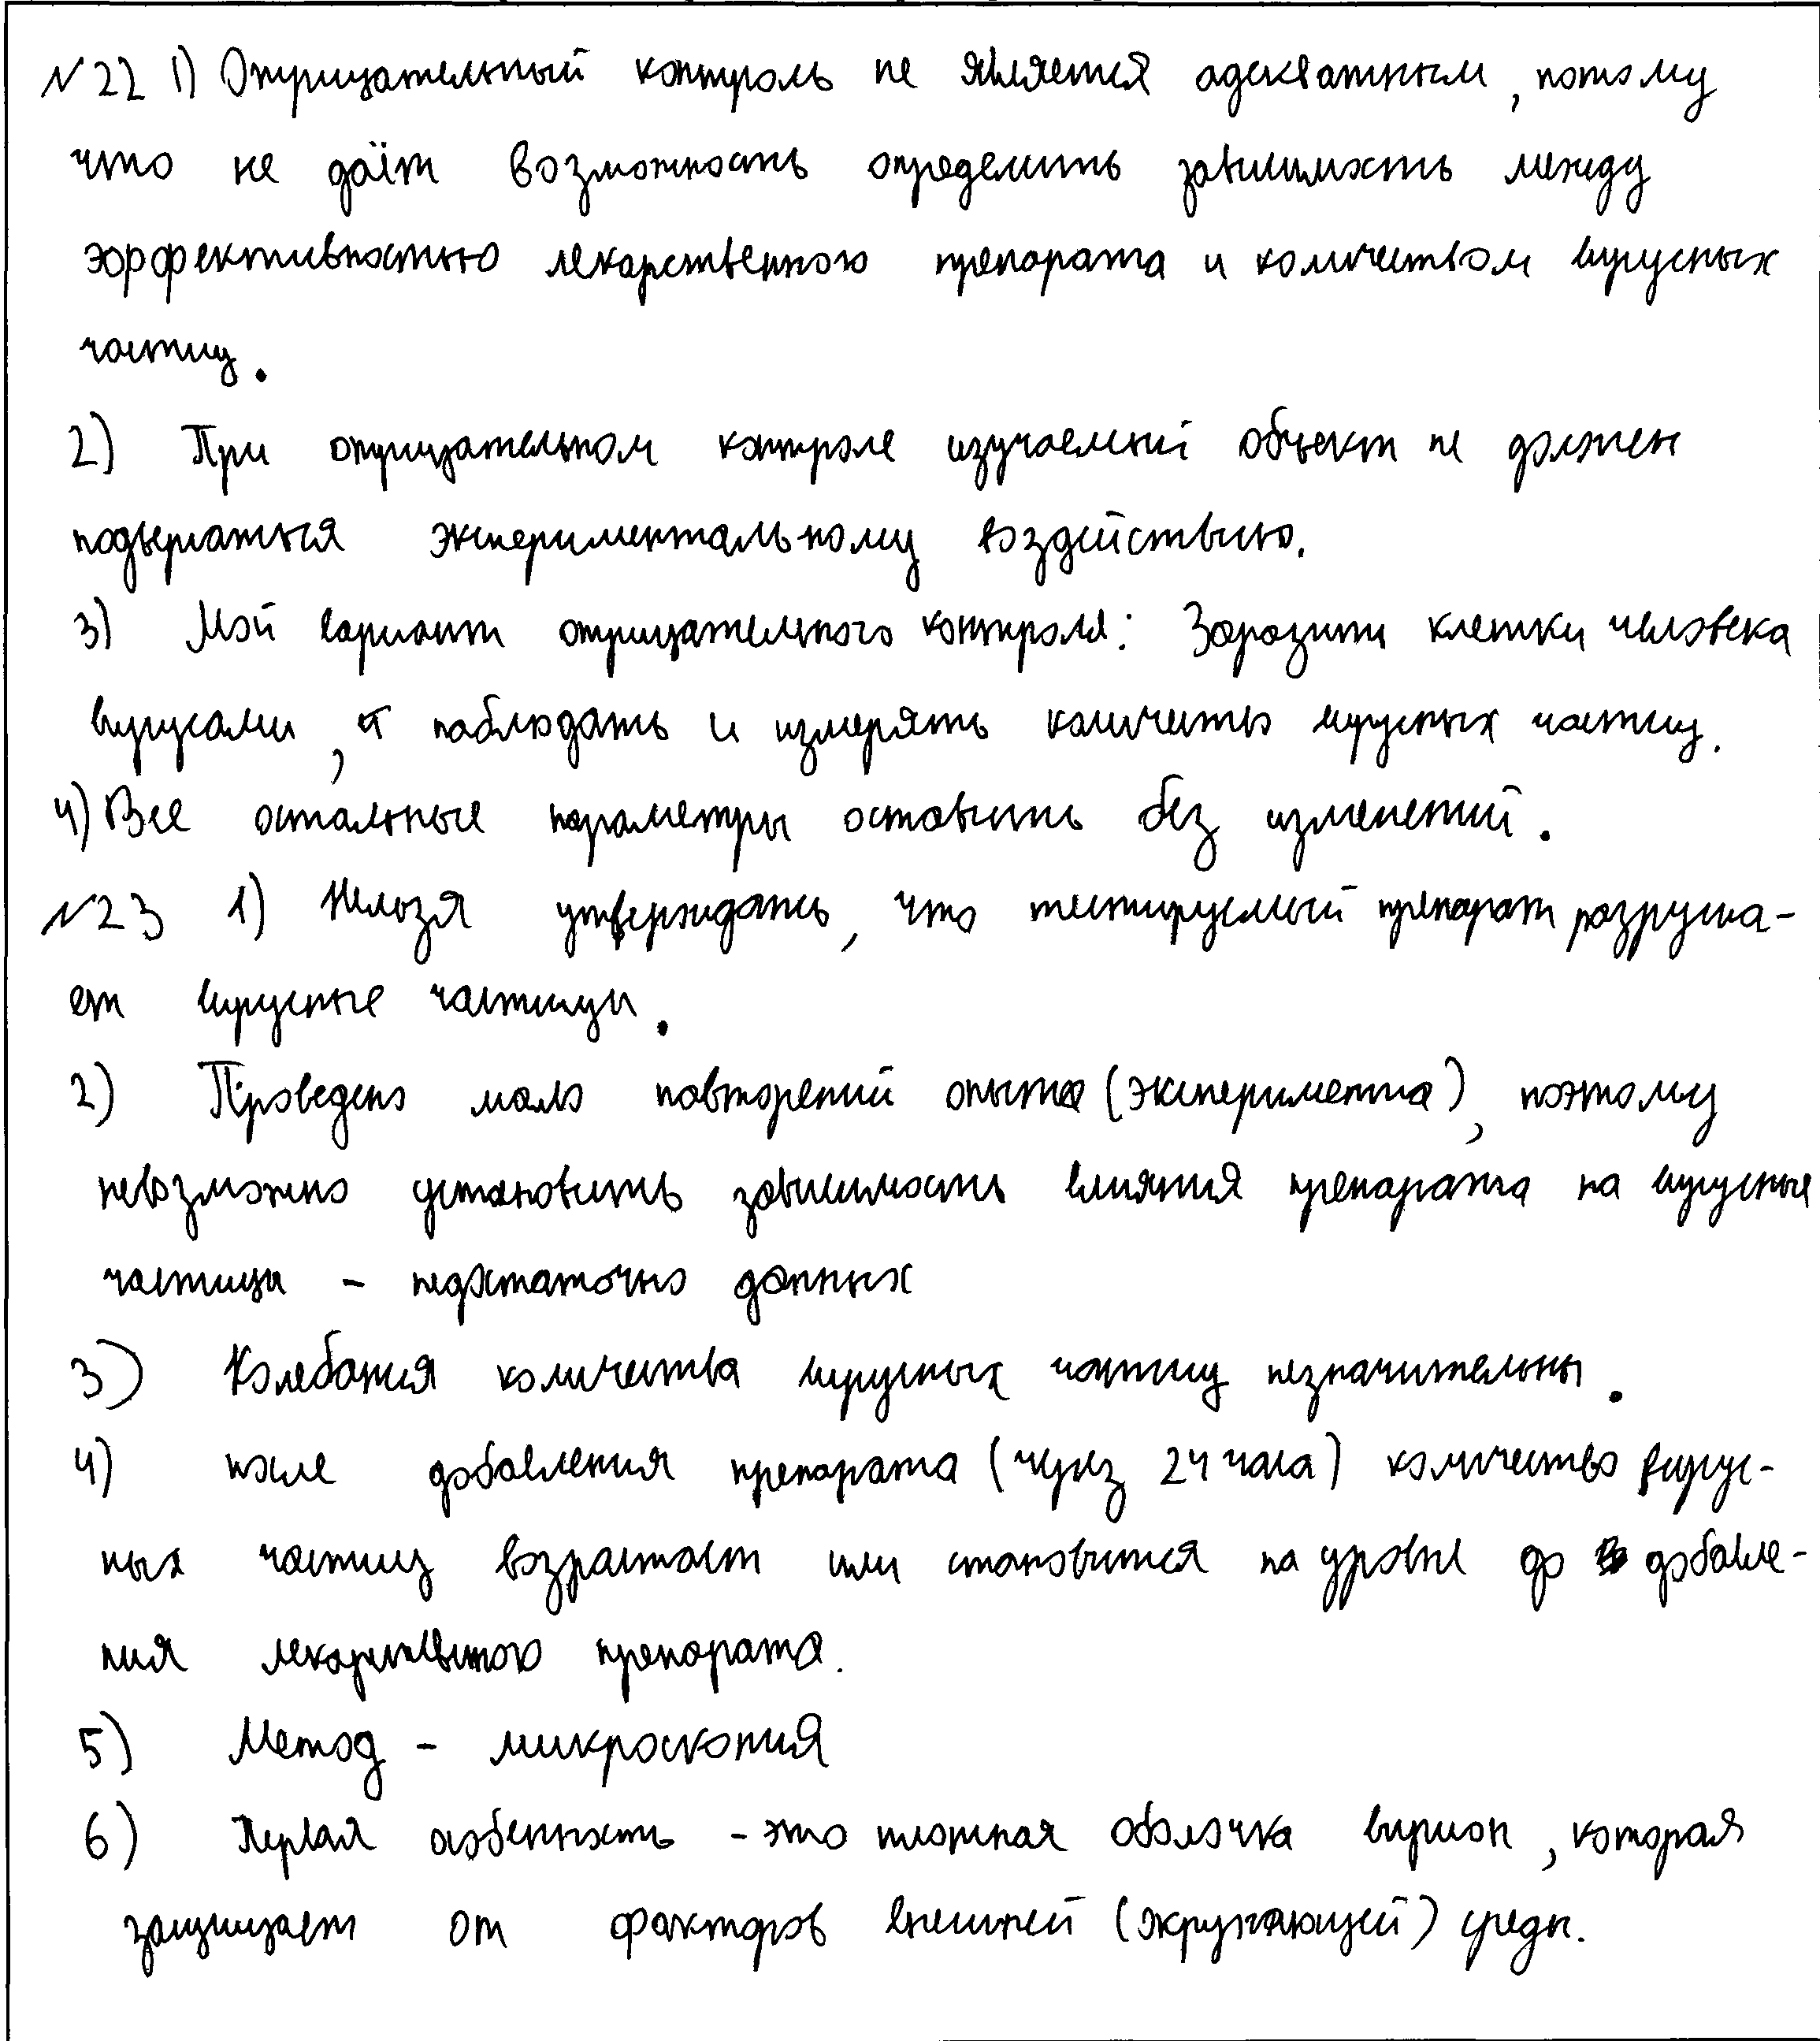 №22 1) Отрицательный контроль не является адекватным, потому
что не даёт возможность определить зависимость между
эффективностью лекарственного препарата и количеством вирусных
частиц.
2) При отрицательном контроле изучаемый объект не должен
подвергаться экспериментальному воздействию.
3) Мой вариант отрицательного контроля: Заразить клетки человека
вирусами, наблюдать и измерять количество вирусных частиц.
4) Все остальные параметры оставить без изменений.
№23 1) Нельзя утверждать, что тестируемый препарат разруша-
ет вирусные частицы.
2) Проведено мало повторений опыта (эксперимента), поэтому
невозможно установить зависимость влияния препарата на вирусные
частицы - недостаточно данных
3) Колебания количества вирусных частиц незначительны.
4) после добавления препарата (через 24 часа) количество вирус-
ных частиц возрастает или становится на уровне до добавле-
ния лекарственного препарата.
5) Метод - микроскопия
6) Первая особенность - это плотная оболочка вирион, которая
защищает от факторов внешней (окружающей) среды.